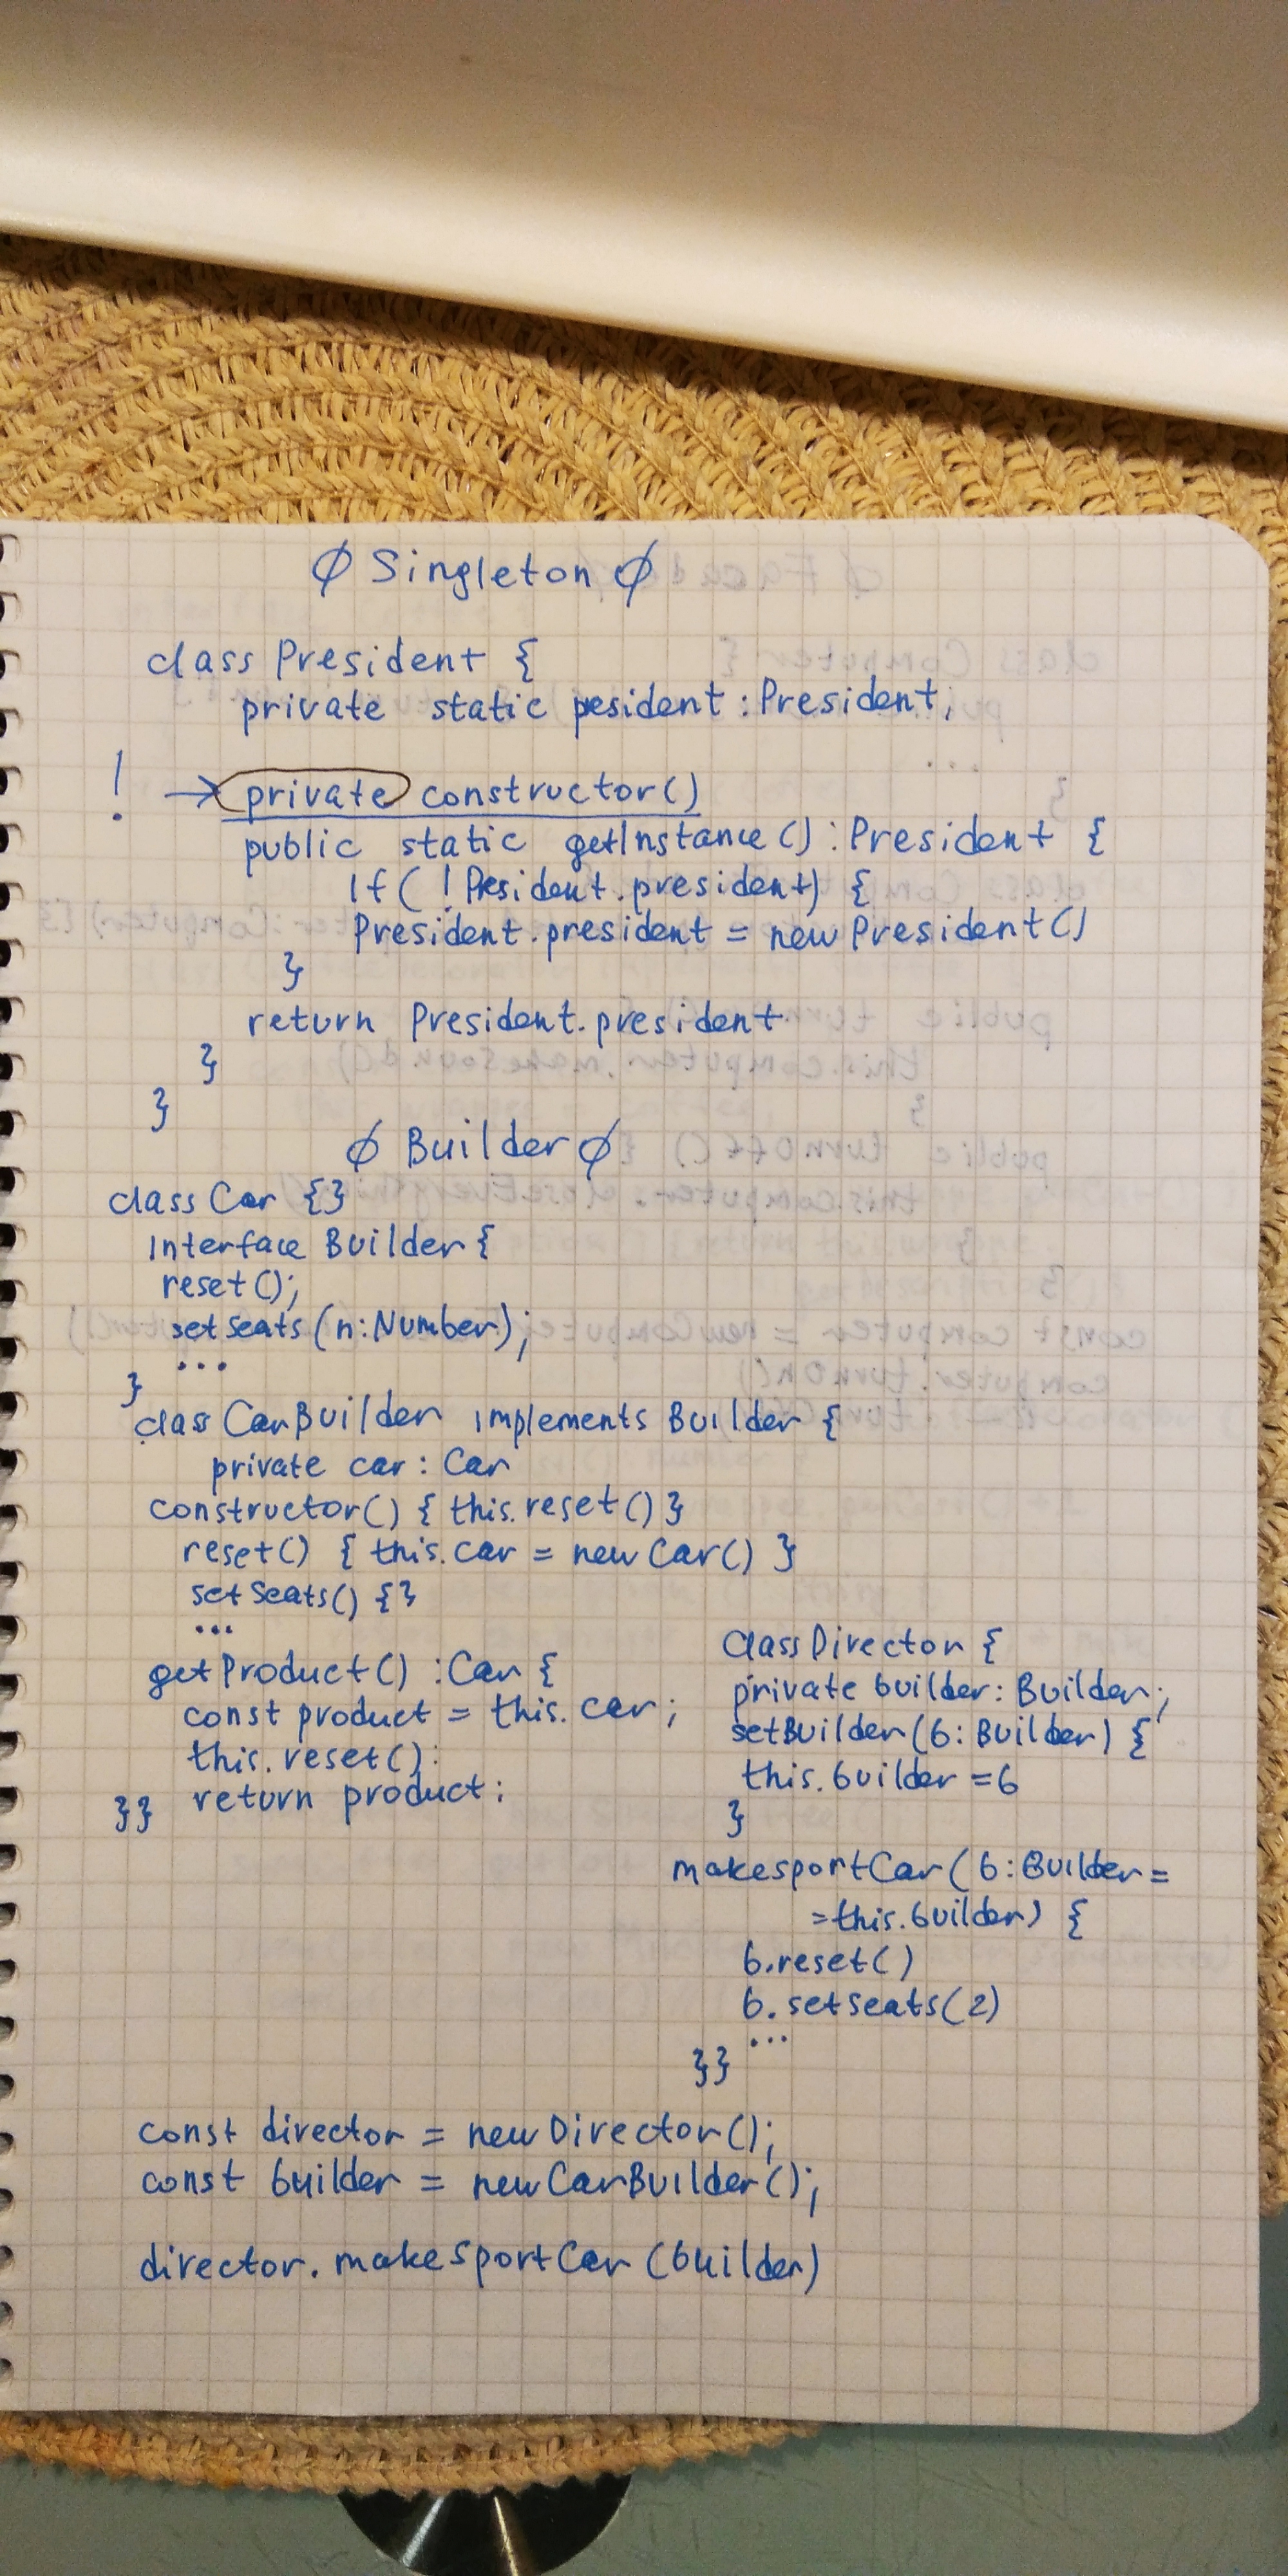 ∅ Singleton ∅
class President {
private static pesident : President;
! → private constructor()
public static getInstance() : President {
If ( ! President.president) {
President.president = new President()
}
return President.president
}
}
∅ Builder ∅
class Car {}
Interface Builder {
reset();
setSeats (n:Number);
...
}
class CarBuilder implements Builder {
private car : Car
constructor() { this.reset() }
reset() { this.car = new Car() }
setSeats() {}
...
getProduct() : Car {
const product = this.car;
this.reset():
}} return product:
class Director {
private builder: Builder;
setBuilder (b: Builder) {
this.builder = b
}
makesportCar (b: Builder =
= this.builder) {
b.reset()
b.setseats(2)
...
}}
const director = new Director();
const builder = new CarBuilder();
director.makeSportCar (builder)